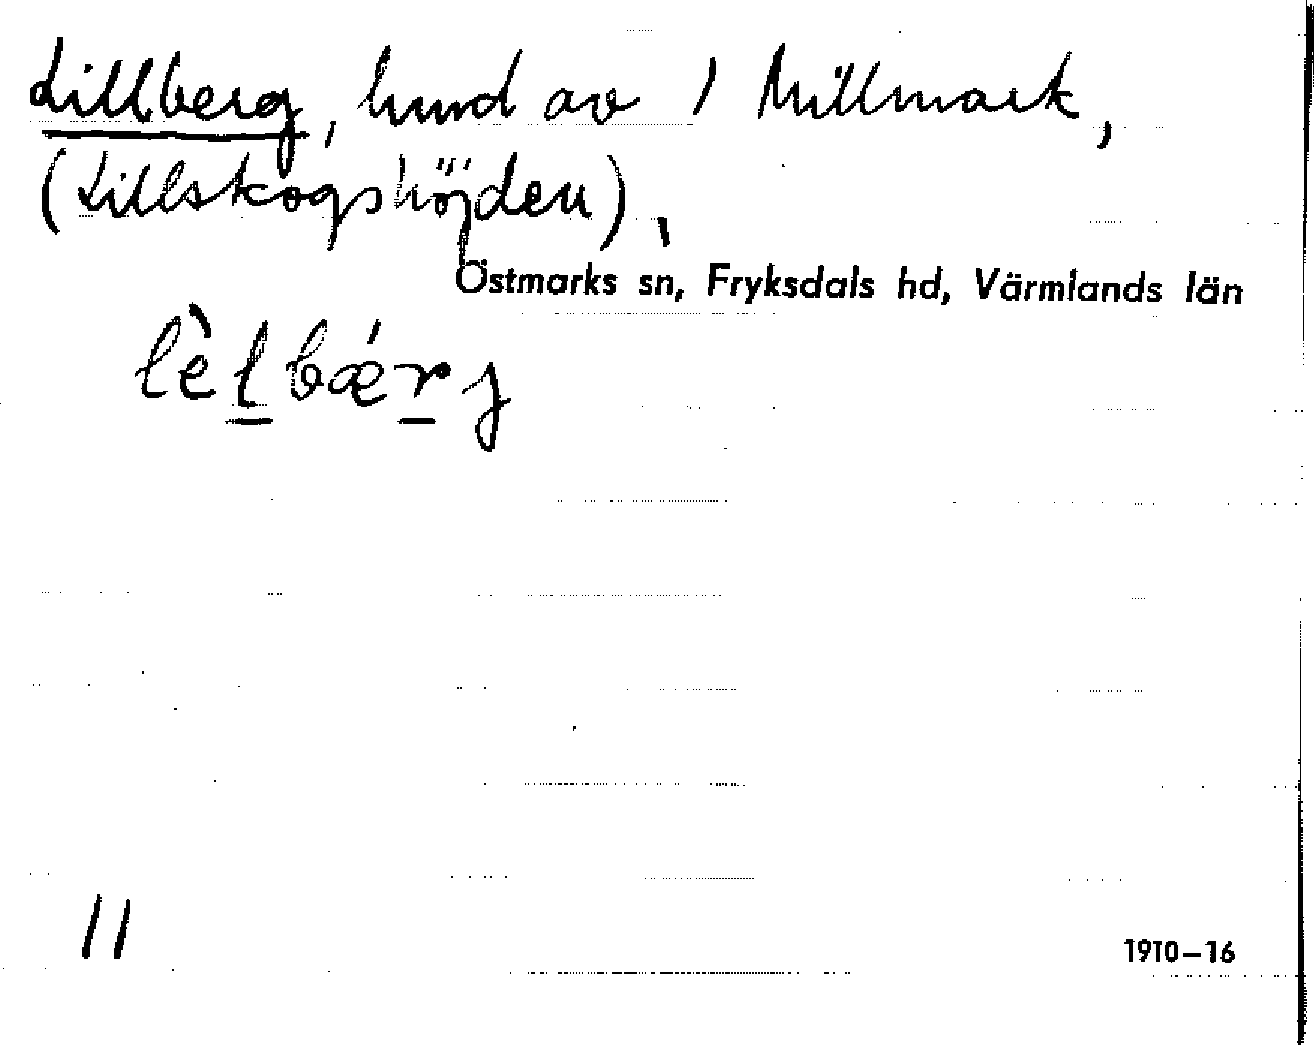 Lillberg, hemd av 1 Millmark,
(Lillskogshöjden),
Östmarks sn, Fryksdals hd, Värmlands län
lèlbǽrj
11
1910–16